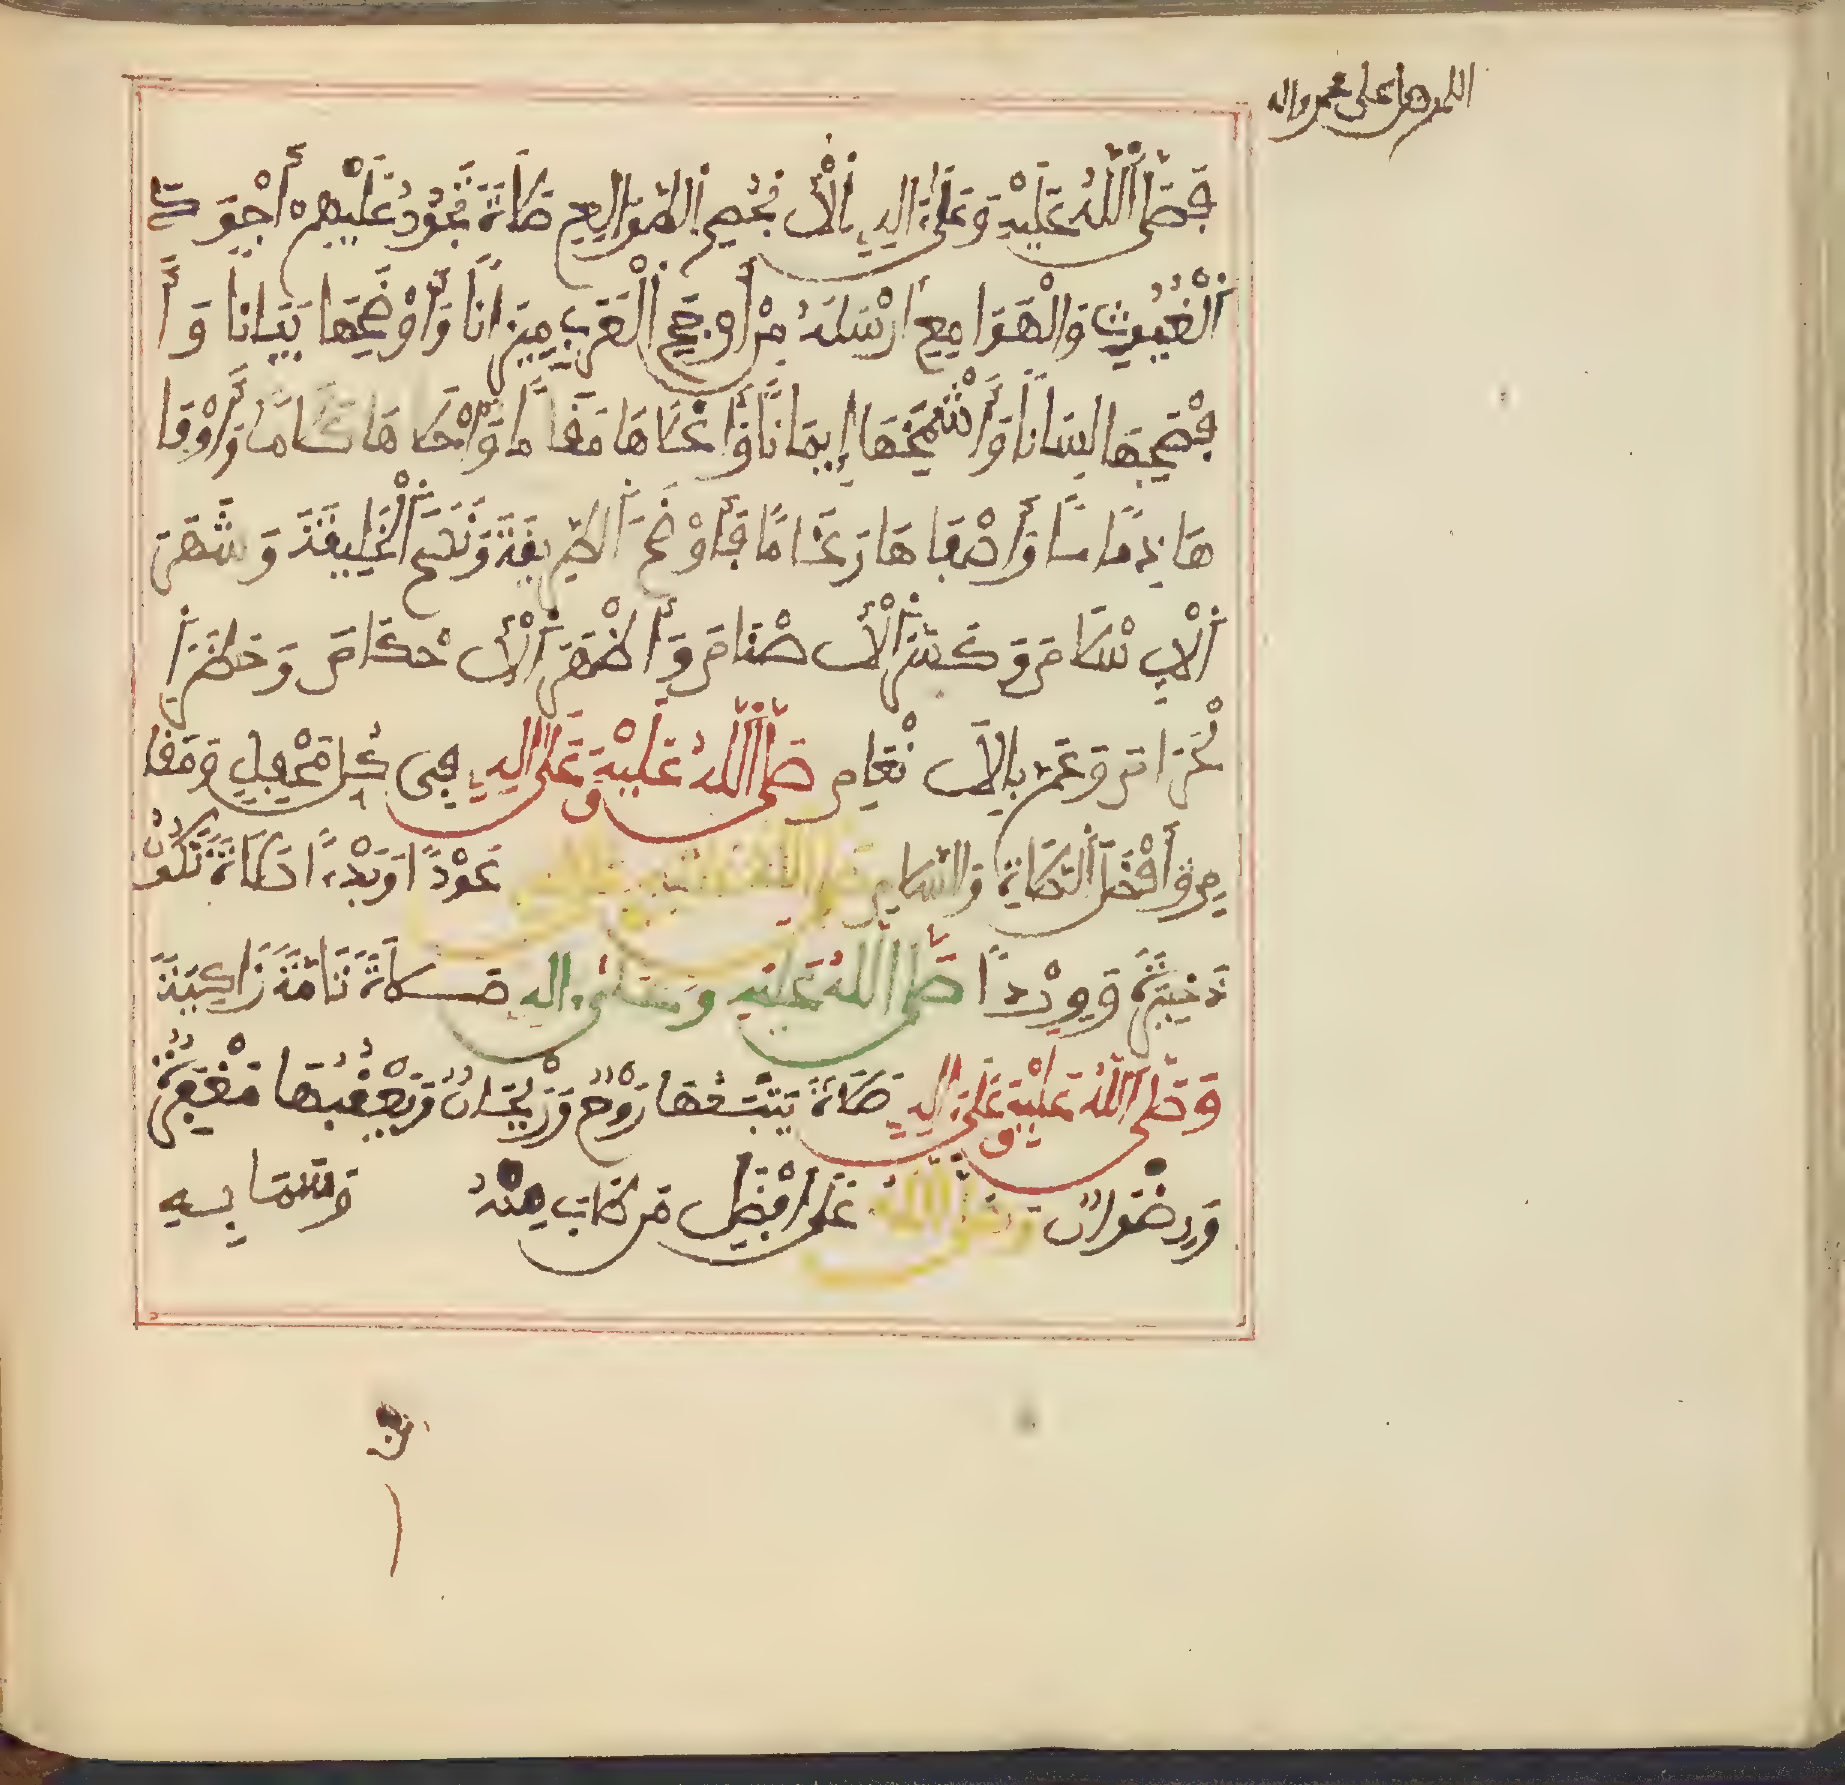 اللهم صل على محمد واله
فَصَلَّى اللَّهُ عَلَيْهِ وَعَلَىٰ ءَالِهِ الْأَنْجُمِ الطَّوَالِعِ صَلَاةً تَجُودُ عَلَيْهِمْ أَجْوَدَ
الْغُيُوثِ وَالْهَوَامِعِ أَرْسَلَهُ مِنْ أَرْجَحِ الْعَرَبِ مِيزَانًا وَأَوْضَحِهَا بَيَانًا وَأَ
فْصَحِهَا لِسَانًا وَأَشْمَخِهَا إِيمَانًا وَأَعْلَاهَا مَقَامًا وَأَحْلَاهَا كَلَامًا وَأَوْفَا
هَا ذِمَامًا وَأَصْفَاهَا رَغَامًا فَأَوْضَحَ الطَّرِيقَةَ وَنَصَحَ الْخَلِيقَةَ وَشَهَرَ
الْإِسْلَامَ وَكَسَّرَ الْأَصْنَامَ وَأَظْهَرَ الْأَحْكَامَ وَحَظَرَ ا
لْحَرَامَ وَعَمَّ بِالْإِنْعَامِ صَلَّى اللَّهُ عَلَيْهِ وَعَلَىٰ ءَالِهِ فِى كُلِّ مَحْفِلٍ وَمَقَا
مٍ أَفْضَلَ الصَّلَاةِ وَالسَّلَامِ صَلَّى اللَّهُ عَلَيْهِ وَعَلَىٰ ءَالِهِ عَوْدًا وَبَدْءًا صَلَاةً تَكُونُ
ذَخِيرَةً وَوِرْدًا صَلَّى اللَّهُ عَلَيْهِ وَعَلَىٰ ءَالِهِ صَلَاةً تَامَّةً زَاكِيَةً
وَصَلَّى اللَّهُ عَلَيْهِ وَعَلَىٰ ءَالِهِ صَلَاةً يَتْبَعُهَا رَوْحٌ وَرَيْحَانٌ وَيَعْقُبُهَا مَغْفِرَةٌ
وَرِضْوَانٌ وَصَلَّى اللَّهُ عَلَى أَفْضَلِ مَن طَابَ مِنْهُ وَسَمَا بِهِ